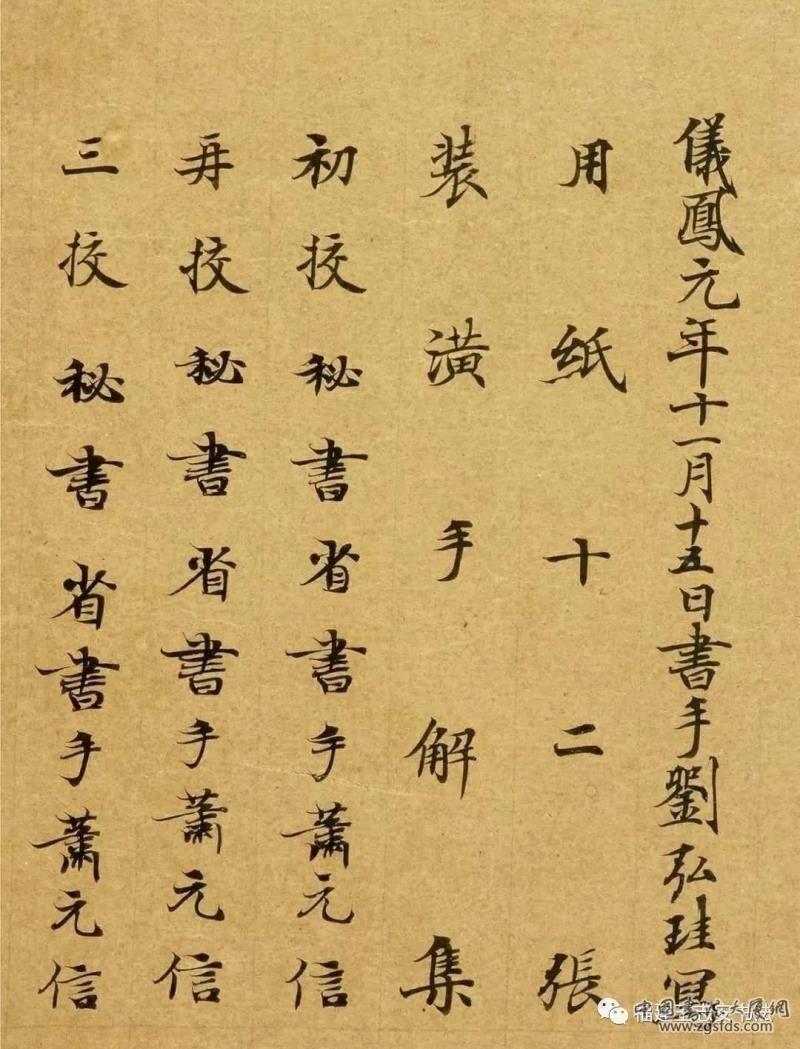 儀鳳元年十一月十五日書手劉弘珪寫
用紙十二張
装潢手解集
初挍秘書省書手蕭元信
再挍秘書省書手蕭元信
三挍秘書省書手蕭元信
www.zgsfds.com